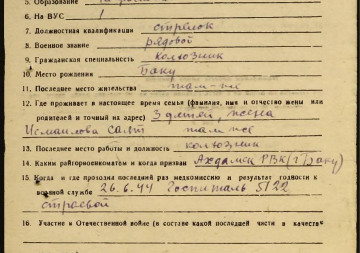 5. Образование
6. На ВУС 1
7. Должностная квалификация стрелок
8. Военное звание рядовой
9. Гражданская специальность колхозник
10. Место рождения Баку
11. Последнее место жительства там-же
12. Где проживает в настоящее время семья (фамилия, имя и отчество жены или
родителей и точный их адрес) 3 детей, жена
Исмаилова там же
13. Последнее место работы и должность колхозник
14. Каким райгорвоенкоматом и когда призван РВК (г. Баку)
15. Когда и где проходил последний раз медкомиссию и результат годности к
военной службе 26.6.44 Госпиталь 5122
строевой
16. Участие в Отечественной войне (в составе какой последней части и качестве